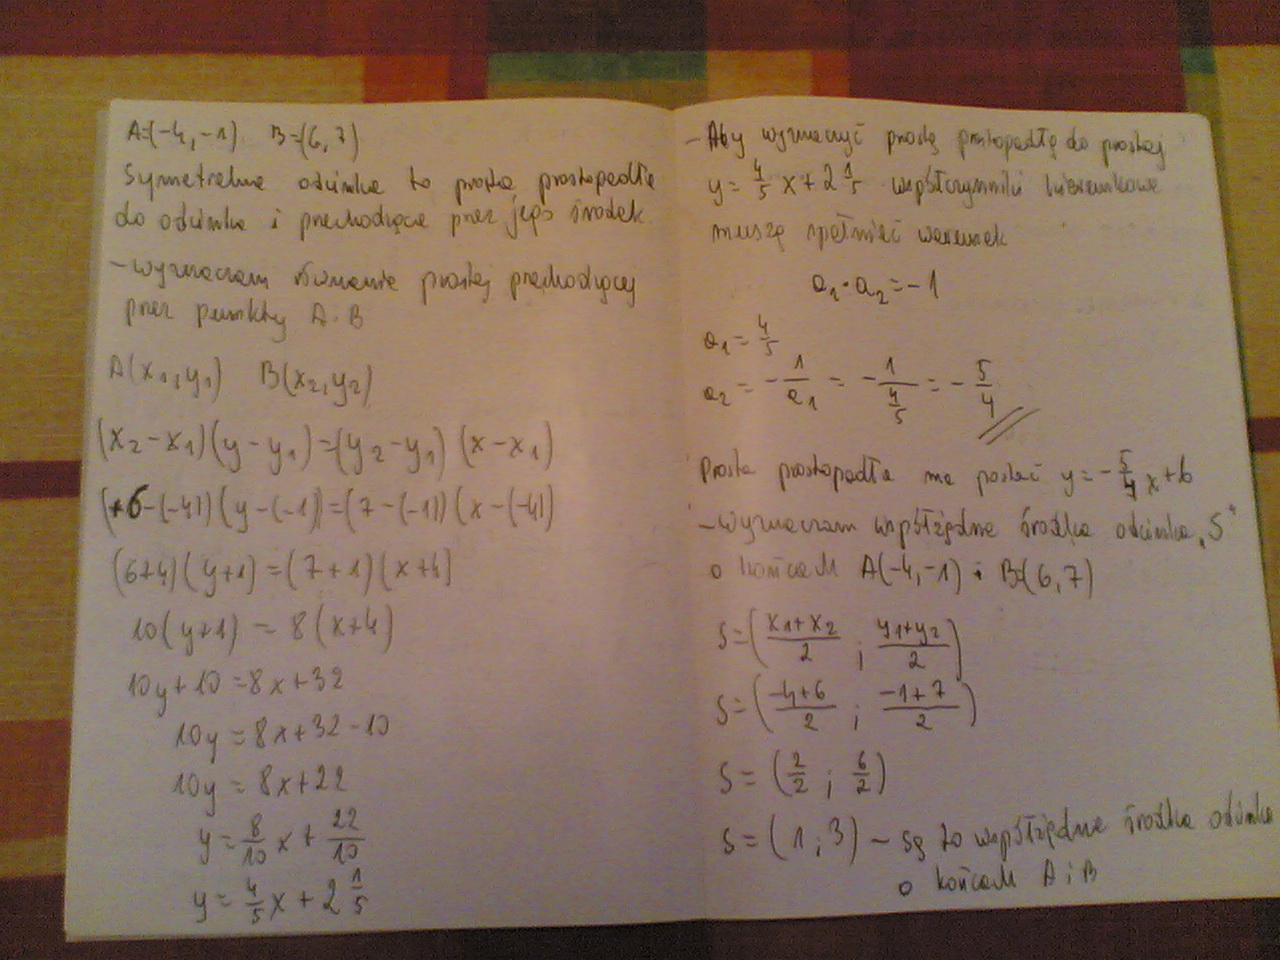 A=(-4,-1) B=(6,7)
Symetralna odcinka to prosta prostopadła
do odcinka i przechodząca przez jego środek.
- wyznaczam równanie prostej przechodzącej
przez punkty A i B
A(x₁,y₁) B(x₂,y₂)
(x₂-x₁)(y-y₁)=(y₂-y₁)(x-x₁)
(+6-(-4))(y-(-1))=(7-(-1))(x-(-4))
(6+4)(y+1)=(7+1)(x+4)
10(y+1) = 8(x+4)
10y+10=8x+32
10y=8x+32-10
10y = 8x+22
y=8/10 x + 22/10
y=4/5 x + 2 1/5
- Aby wyznaczyć prostą prostopadłą do prostej
y=4/5 x+2 1/5 współczynniki kierunkowe
muszą spełniać warunek
a₁·a₂=-1
a₁=4/5
a₂ = -1/a₁ = -1/(4/5) = -5/4
Prosta prostopadła ma postać y=-5/4 x+b
- wyznaczam współrzędne środka odcinka „S"
o końcach A(-4,-1) i B=(6,7)
S=((x₁+x₂)/2 ; (y₁+y₂)/2)
S=((-4+6)/2 ; (-1+7)/2)
S=(2/2 ; 6/2)
S=(1;3) - są to współrzędne środka odcinka
o końcach A i B